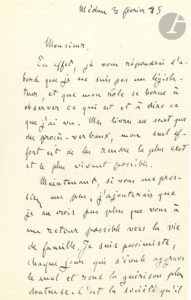 Médan 2 février 85
Monsieur,
En effet, je vous répondrai d'a-
bord que je ne suis pas un législa-
teur et que mon rôle se borne à
observer ce qui est et à dire ce
que j'ai vu. Mes livres ne sont que
des procès-verbaux, mon seul ef-
fort est de les rendre le plus exact
et le plus vivant possible.
Maintenant, si vous me pres-
siez un peu, j'ajouterais que
je ne crois pas plus que vous à
un retour possible vers la vie
de famille. Je suis pessimiste,
chaque jour qui s'écoule aggrave
le mal et rend la guérison plus
douteuse. C'est la société qu'il